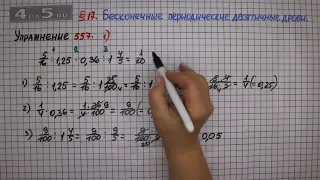 4 на 5.ru
§ 17. Бесконечные периодические десятичные дроби.
Упражнение 557. 1)
1 2 3
5/16 : 1,25 · 0,36 : 1 4/5 = 1/20
1) 5/16 : 1,25 = 5/16 : 1 25/100
= 1/4 (= 0,25)
2) 1/4 · 0,36 = = 9/100
3) 9/100 : 1 4/5 = 9/100 : 9/5 = 0,05